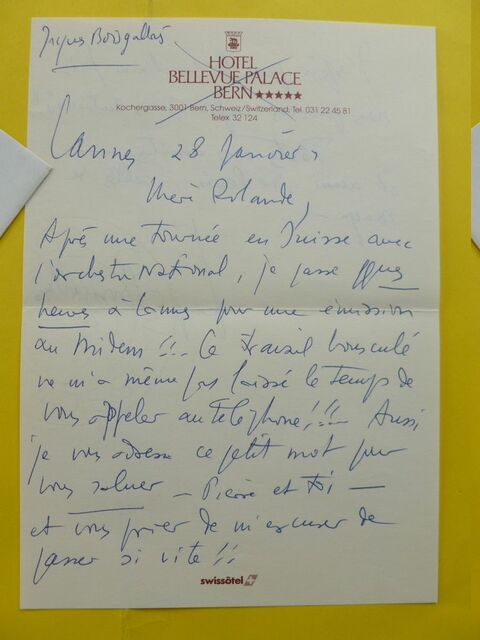 Jacques Bourgallais
HOTEL
BELLEVUE PALACE
BERN ★★★★★
Kochergasse, 3001 Bern, Schweiz/Switzerland, Tel. 031 22 45 81
Telex 32 124
Cannes 28 Janvier
Chère Rolande,
Après une tournée en Suisse avec
l'orchestre National, je passe qques
heures à Cannes pour une émission
au Midem !!! Ce travail bousculé
ne m'a même pas laissé le temps de
vous appeler au téléphone !!! Aussi
je vous adresse ce petit mot pour
vous saluer — Pierre et toi —
et vous prier de m'excuser de
passer si vite !!
swissôtel